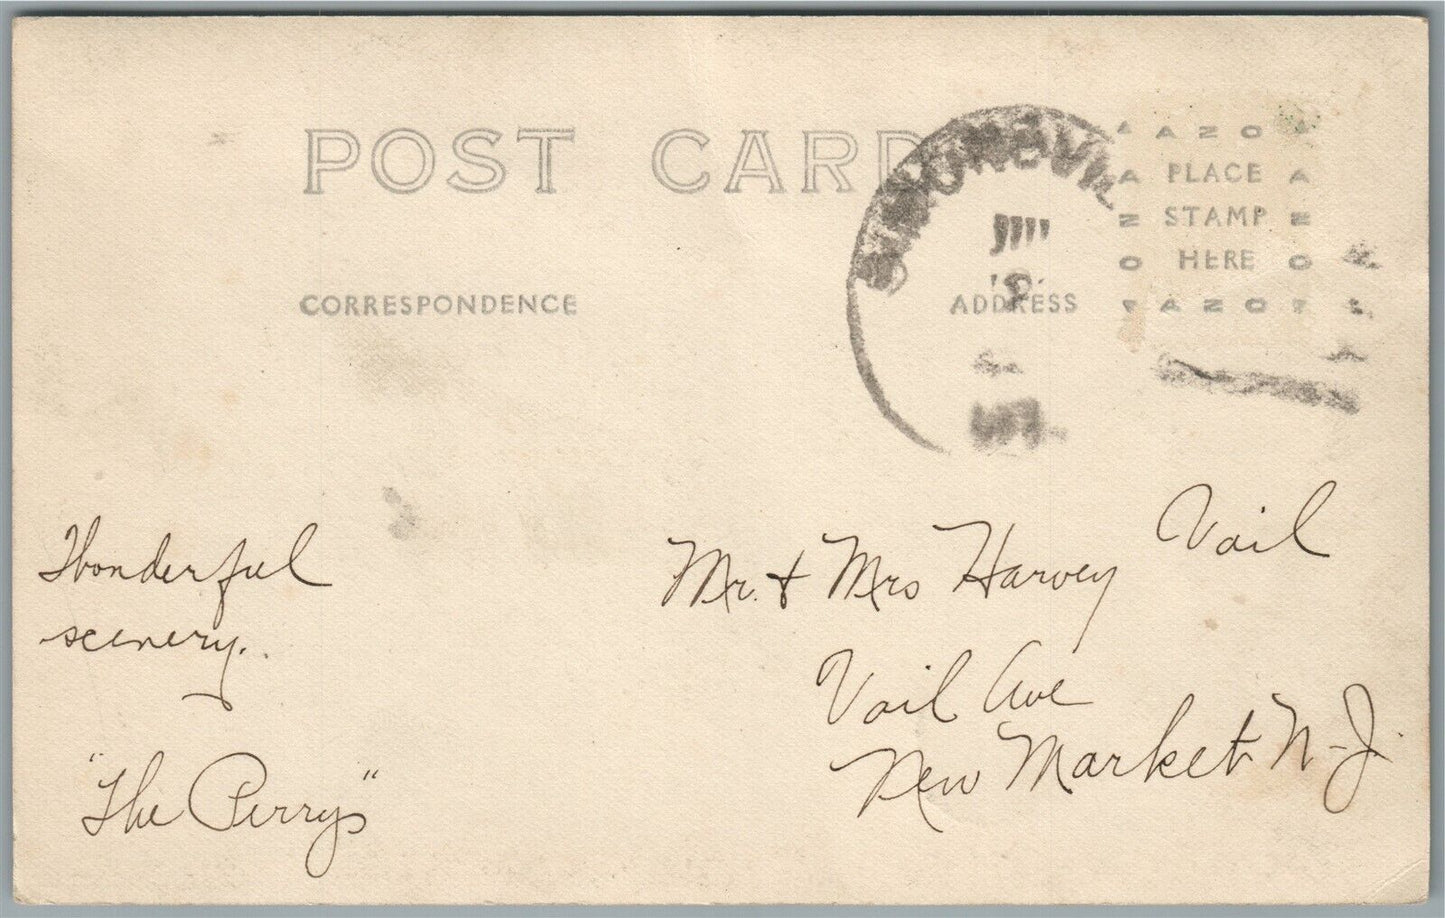 POST CARD
CORRESPONDENCE
ADDRESS
AZO
PLACE
STAMP
HERE
AZO
Wonderful
scenery.
"The Perrys"
Mr. & Mrs Harvey Vail
Vail Ave
New Market N-J.